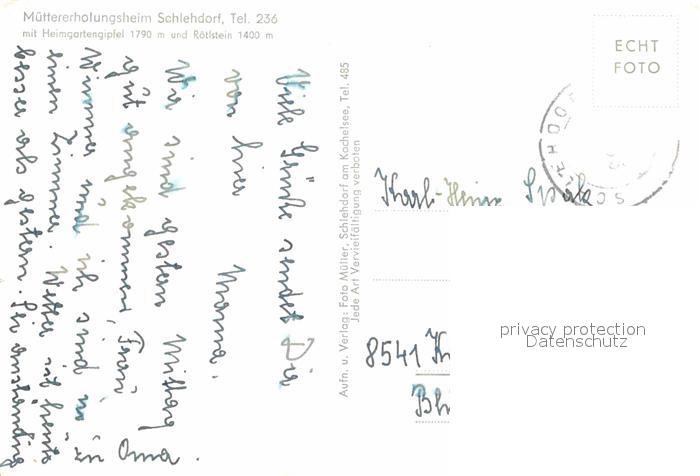 Müttererholungsheim Schlehdorf, Tel. 236
mit Heimgartengipfel 1790 m und Rötlstein 1400 m
Viele Grüße sendet Dir
von hier Mama.
Wir sind gestern Mittag
gut angekommen, Frau
Wimmer und ich sind in
einem Zimmer. Wetter ist heute
besser als gestern. Sei anständig
zu Oma.
Aufn. u. Verlag: Foto Müller, Schlehdorf am Kochelsee, Tel. 485
Jede Art Vervielfältigung verboten
ECHT
FOTO
SCHLEHDOR
Karl-Heinz
8541
privacy protection
Datenschutz